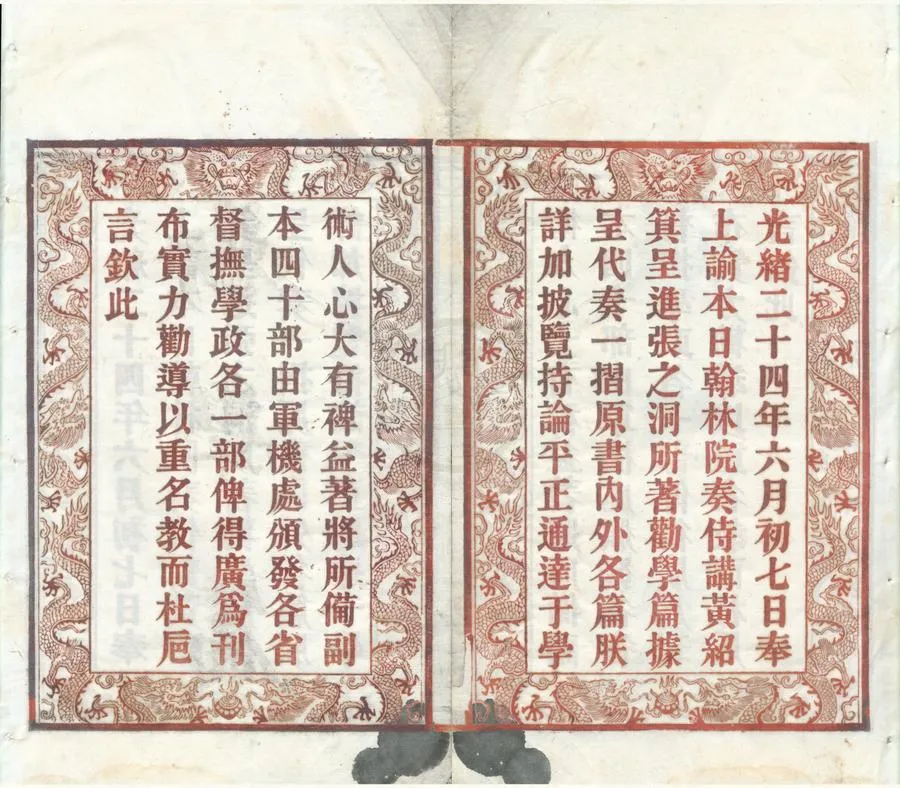 光緒二十四年六月初七日奉
上諭本日翰林院奏侍講黃紹
箕呈進張之洞所著勸學篇據
呈代奏一摺原書內外各篇朕
詳加披覽持論平正通達于學
術人心大有裨益著將所備副
本四十部由軍機處頒發各省
督撫學政各一部俾得廣爲刊
布實力勸導以重名教而杜巵
言欽此